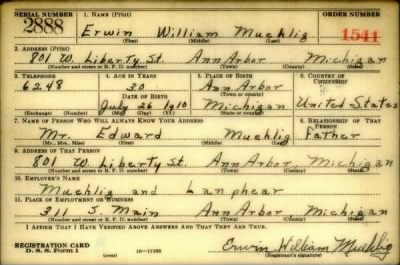 SERIAL NUMBER 1. NAME (Print) ORDER NUMBER
2888 Erwin William Muehlig 1541
(First) (Middle) (Last)
2. ADDRESS (Print)
801 W. Liberty St. Ann Arbor Michigan
(Number and street or R. F. D. number) (Town) (County) (State)
3. TELEPHONE 4. AGE IN YEARS 5. PLACE OF BIRTH 6. COUNTRY OF CITIZENSHIP
6248 30 Ann Arbor
(Town or county)
DATE OF BIRTH
July 26 1910 Michigan United States
(Exchange) (Number) (Mo.) (Day) (Yr.) (State or country)
7. NAME OF PERSON WHO WILL ALWAYS KNOW YOUR ADDRESS 8. RELATIONSHIP OF THAT PERSON
Mr. Edward Muehlig Father
(Mr., Mrs., Miss) (First) (Middle) (Last)
9. ADDRESS OF THAT PERSON
801 W. Liberty St. Ann Arbor, Michigan
(Number and street or R. F. D. number) (Town) (County) (State)
10. EMPLOYER'S NAME
Muehlig and Lanphear
11. PLACE OF EMPLOYMENT OR BUSINESS
311 S. Main Ann Arbor Michigan
(Number and street or R. F. D. number) (Town) (County) (State)
I AFFIRM THAT I HAVE VERIFIED ABOVE ANSWERS AND THAT THEY ARE TRUE.
REGISTRATION CARD Erwin William Muehlig
D. S. S. Form 1 (over) 16—17105 (Registrant's signature)